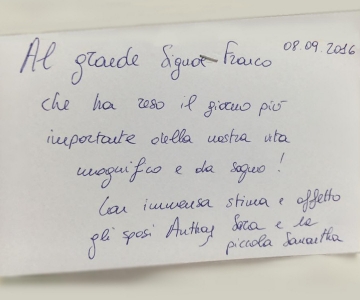 Al grande Signor Franco 08.09.2016
che ha reso il giorno più
importante della nostra vita
magnifico e da sogno!
Con immensa stima e affetto
gli sposi Anthony Sara e la
piccola Samantha